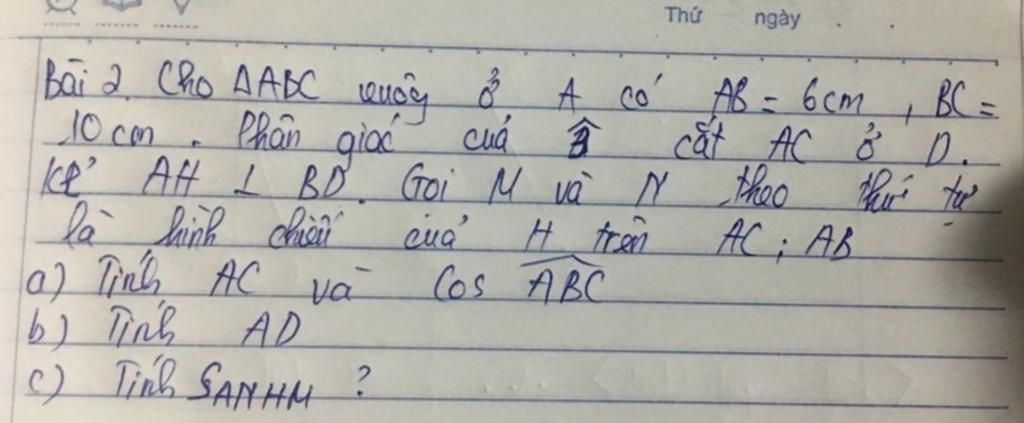 Thứ ngày
Bài 2. Cho ΔABC vuông ở A có AB = 6cm, BC =
10cm. Phân giác cuả B̂ cắt AC ở D.
Kẻ AH ⊥ BD. Gọi M và N theo thứ tự
là hình chiếu cuả H trên AC; AB
a) Tính AC và Cos \widehat{ABC}
b) Tính AD
c) Tính S_{ANHM} ?